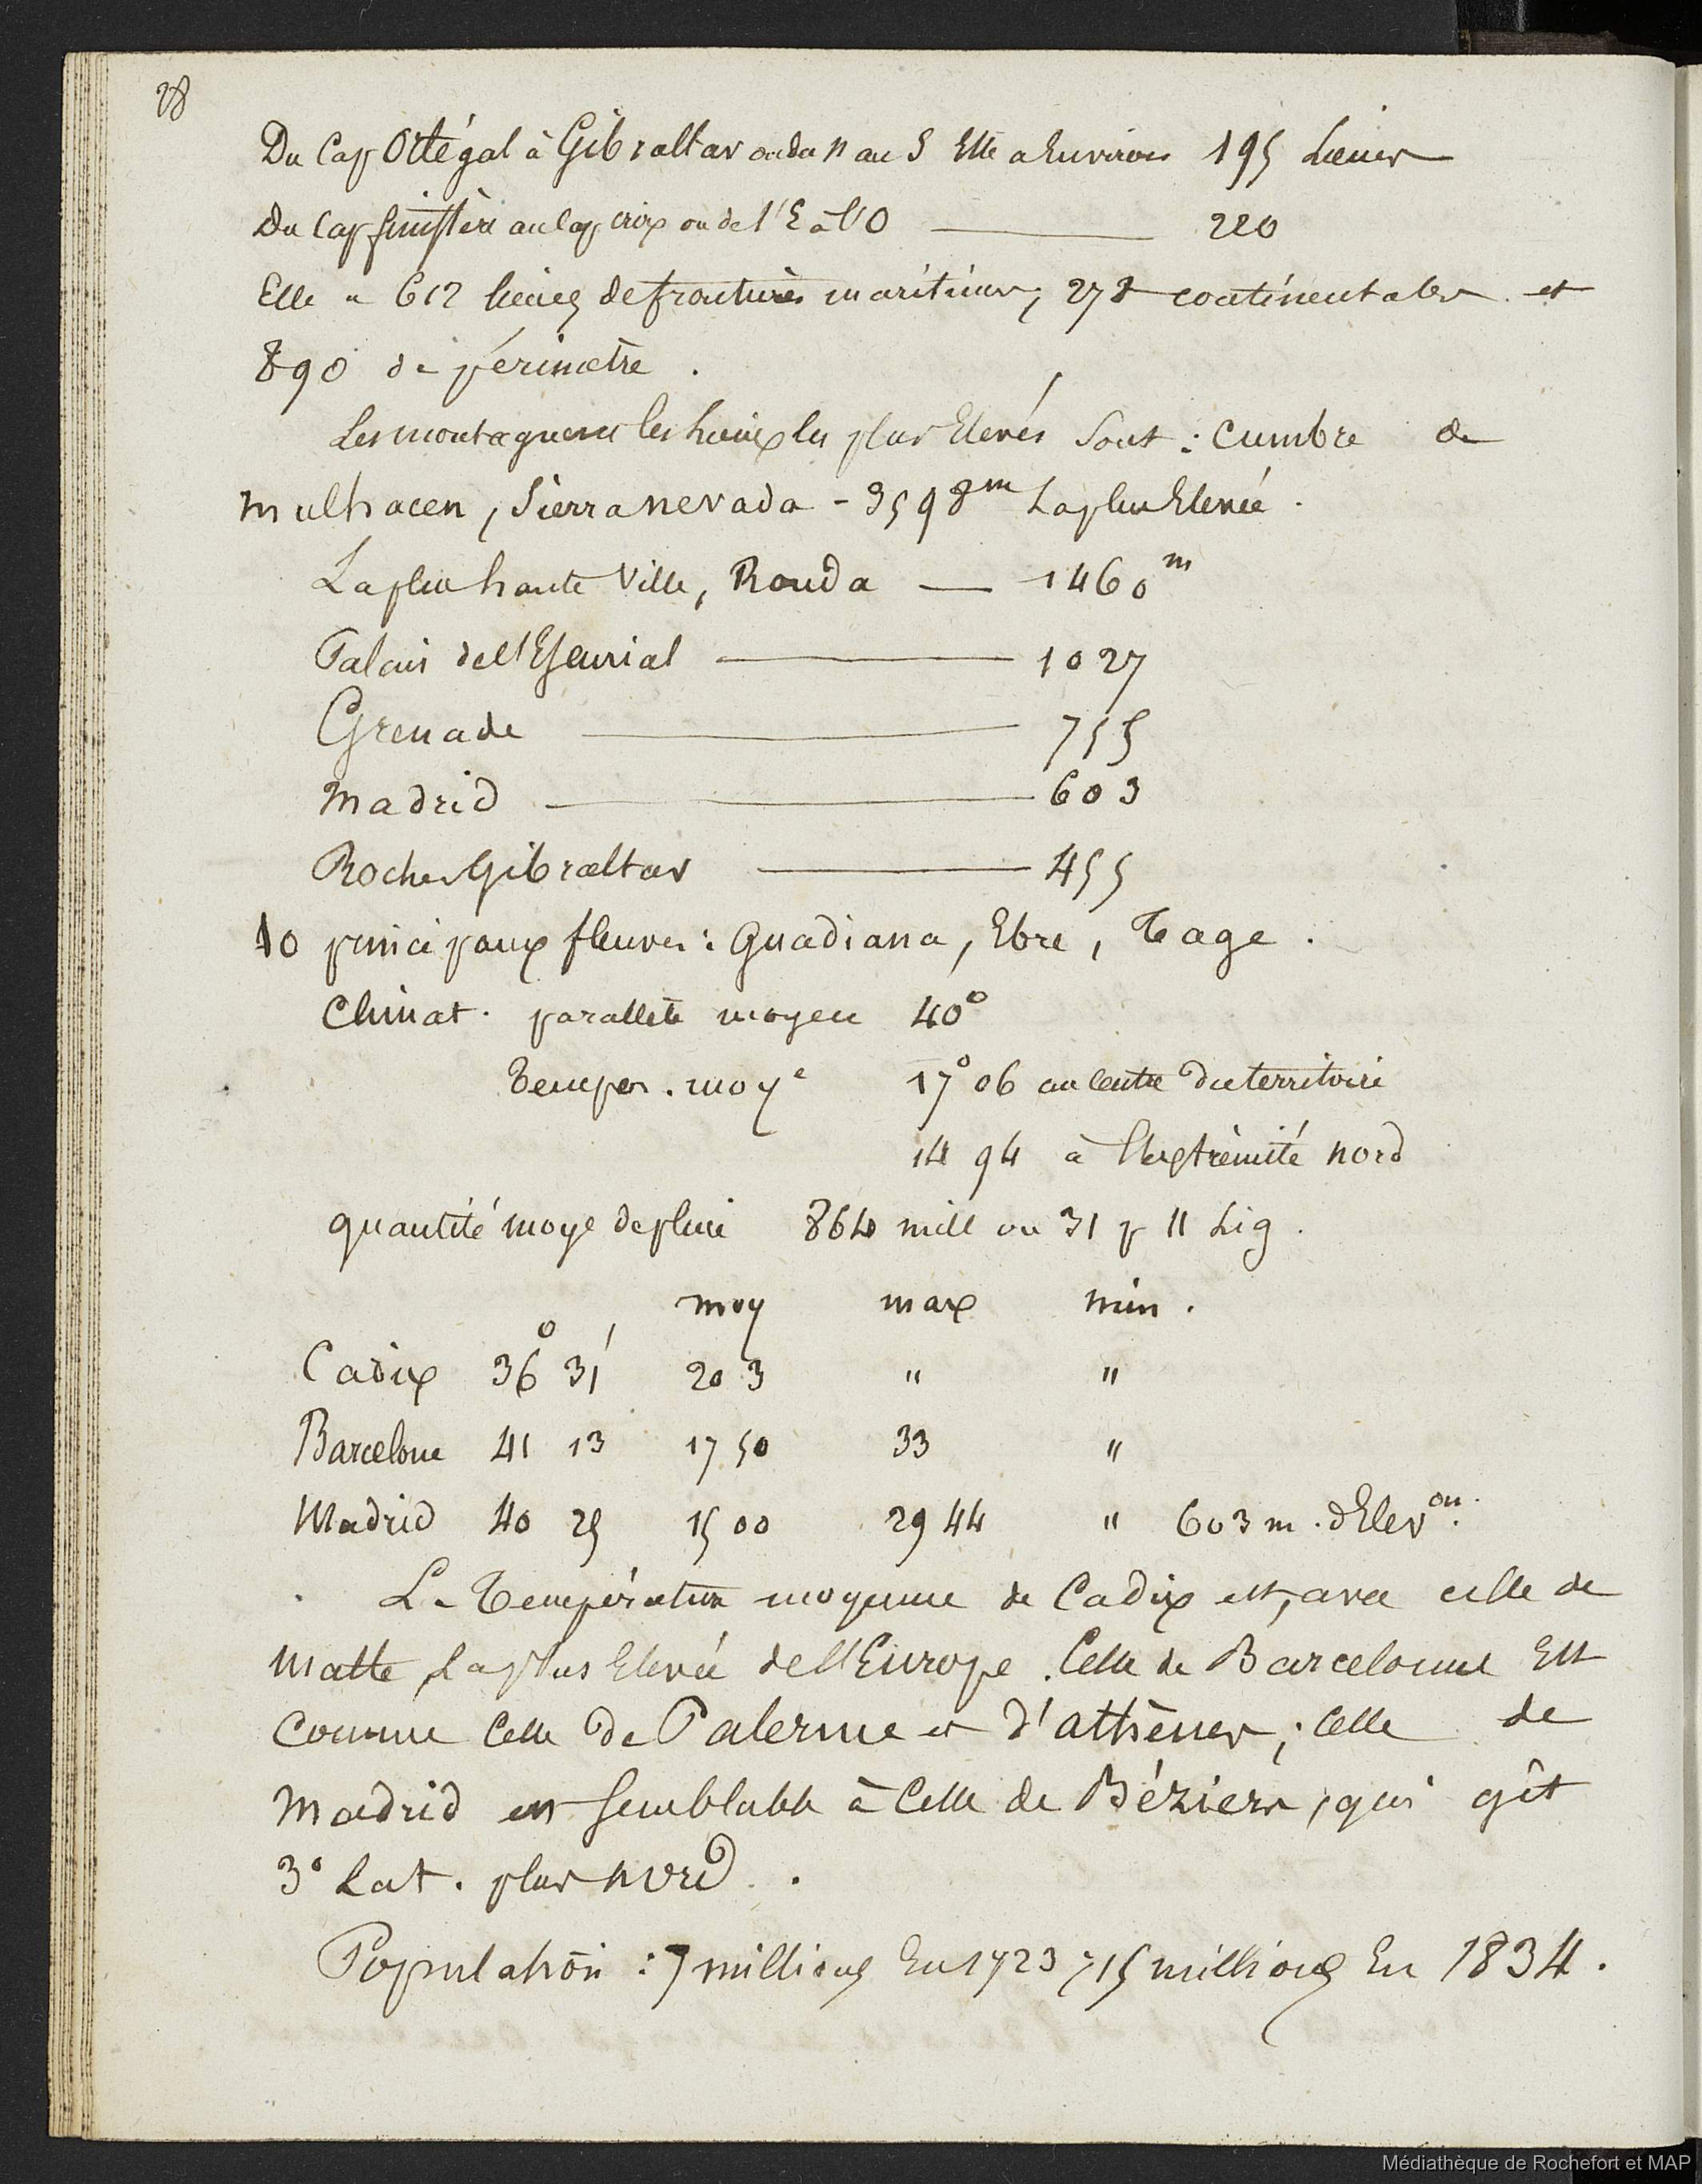 28
Du Cap Ortégal à Gibraltar ou du N au S Elle a Environ 195 Lieues
Du Cap finistère au Cap croix ou de l'E à l'O — 220
Elle a 612 lieues de frontières maritimes, 278 continentales et
890 de périmètre .
Les montagnes et les lieux les plus Elevés Sont : Cumbre de
mulhacen, Sierra nevada - 3598m La plus Elevée .
La plus haute Ville, Ronda — 1460m
Palais de l'Escurial — 1027
Grenade — 755
Madrid — 603
Roche Gibraltar — 455
10 principaux fleuves : Guadiana, Ebre, Tage .
Climat . parallèle moyen 40°
Temper . moye 17°06 au Centre du territoire
14 94 à l'extrèmité nord
quantité moye de pluie 864 mill ou 31 p 11 Lig .
moy max min .
Cadix 36° 31' 20 3 " "
Barcelone 41 13 17 50 33 "
Madrid 40 25 15 00 29 44 " 603 m . d'Elevon.
La Température moyenne de Cadix est, avec celle de
Malte, La plus Elevée de l'Europe . Celle de Barcelonne Est
Comme Celle de Palerme et d'athènes ; Celle de
Madrid est Semblable à Celle de Béziers, qui gît
3° Lat . plus nord .
Population : 7 millions En 1723 ; 15 millions En 1834 .
Médiathèque de Rochefort et MAP